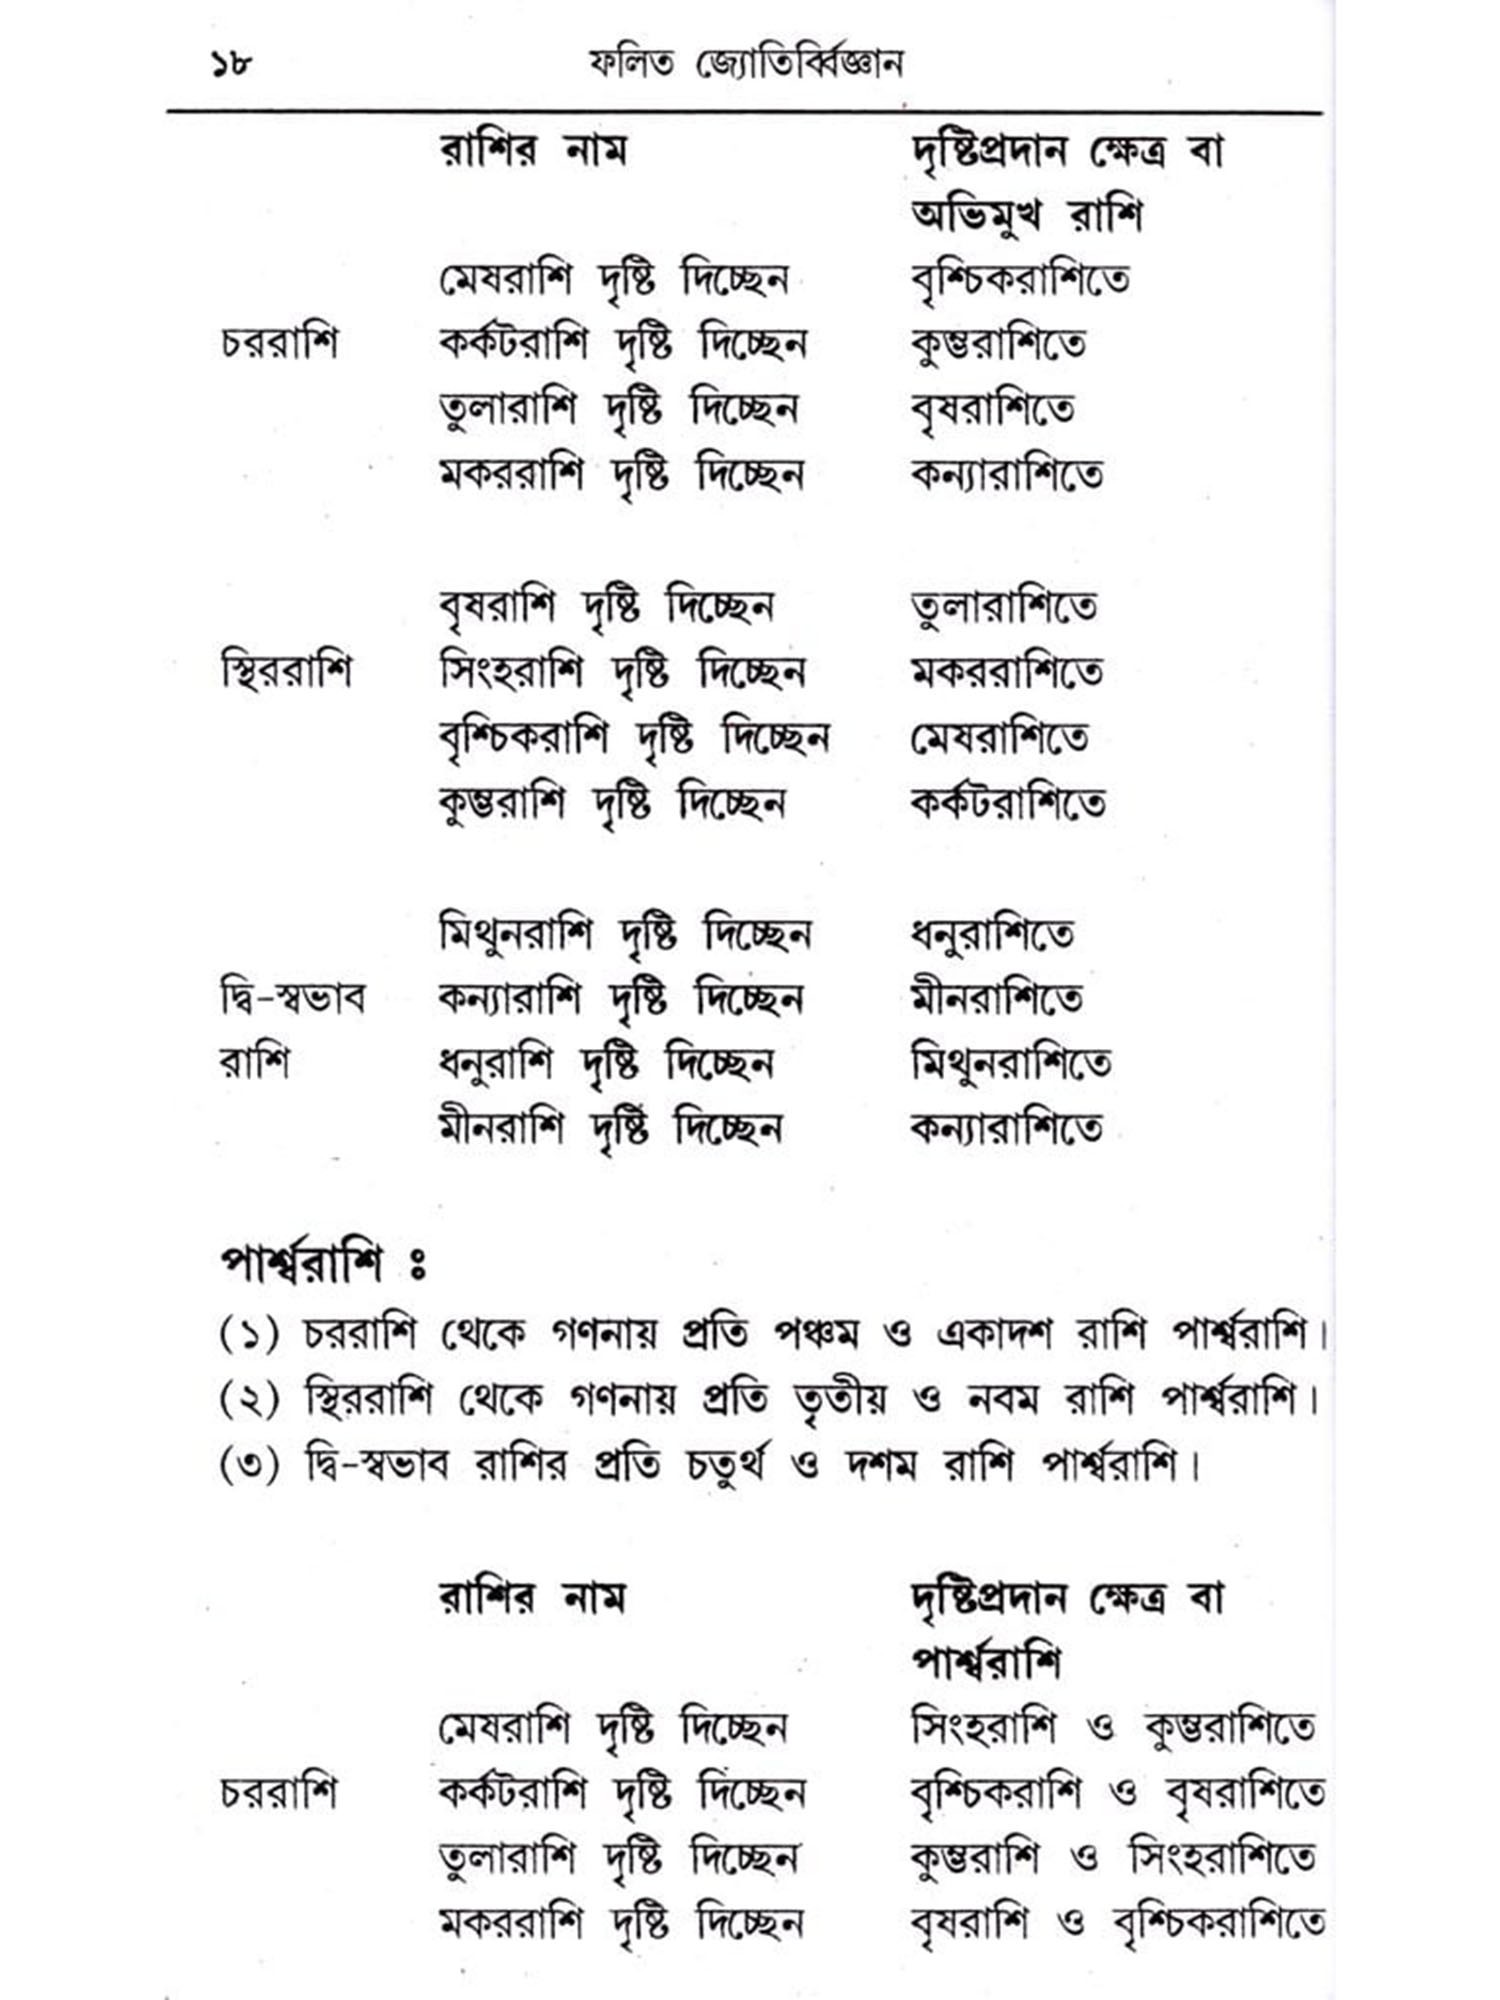 ১৮ ফলিত জ্যোতির্ব্বিজ্ঞান
রাশির নাম দৃষ্টিপ্রদান ক্ষেত্র বা
অভিমুখ রাশি
মেষরাশি দৃষ্টি দিচ্ছেন বৃশ্চিকরাশিতে
চররাশি কর্কটরাশি দৃষ্টি দিচ্ছেন কুম্ভরাশিতে
তুলারাশি দৃষ্টি দিচ্ছেন বৃষরাশিতে
মকররাশি দৃষ্টি দিচ্ছেন কন্যারাশিতে
বৃষরাশি দৃষ্টি দিচ্ছেন তুলারাশিতে
স্থিররাশি সিংহরাশি দৃষ্টি দিচ্ছেন মকররাশিতে
বৃশ্চিকরাশি দৃষ্টি দিচ্ছেন মেষরাশিতে
কুম্ভরাশি দৃষ্টি দিচ্ছেন কর্কটরাশিতে
মিথুনরাশি দৃষ্টি দিচ্ছেন ধনুরাশিতে
দ্বি-স্বভাব কন্যারাশি দৃষ্টি দিচ্ছেন মীনরাশিতে
রাশি ধনুরাশি দৃষ্টি দিচ্ছেন মিথুনরাশিতে
মীনরাশি দৃষ্টি দিচ্ছেন কন্যারাশিতে
পার্শ্বরাশি ঃ
(১) চররাশি থেকে গণনায় প্রতি পঞ্চম ও একাদশ রাশি পার্শ্বরাশি।
(২) স্থিররাশি থেকে গণনায় প্রতি তৃতীয় ও নবম রাশি পার্শ্বরাশি।
(৩) দ্বি-স্বভাব রাশির প্রতি চতুর্থ ও দশম রাশি পার্শ্বরাশি।
রাশির নাম দৃষ্টিপ্রদান ক্ষেত্র বা
পার্শ্বরাশি
মেষরাশি দৃষ্টি দিচ্ছেন সিংহরাশি ও কুম্ভরাশিতে
চররাশি কর্কটরাশি দৃষ্টি দিচ্ছেন বৃশ্চিকরাশি ও বৃষরাশিতে
তুলারাশি দৃষ্টি দিচ্ছেন কুম্ভরাশি ও সিংহরাশিতে
মকররাশি দৃষ্টি দিচ্ছেন বৃষরাশি ও বৃশ্চিকরাশিতে